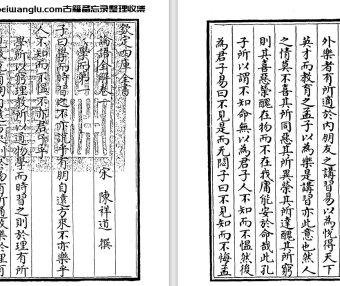 beiwanglu.com古籍备忘录整理收集
欽定四庫全書
論語全解卷一
宋 陳祥道 撰
學而第一
子曰學而時習之不亦說乎有朋自遠方來不亦樂乎
人不知而不愠不亦君子乎
學所以窮理教所以通物學而時習之則於理有所
外樂者有所適於内朋友之講習易以為悅得天下
英才而教育之孟子以為樂是講習亦此意也然人
之情莫不喜其所同惡其所異榮其所達醜其所窮
則其喜惡榮醜在物而不在我庸能安於命哉此孔
子所以謂不知命無以為君子人不知而不愠然後
為君子易曰不見是而无悶子曰不見知而不悔孟